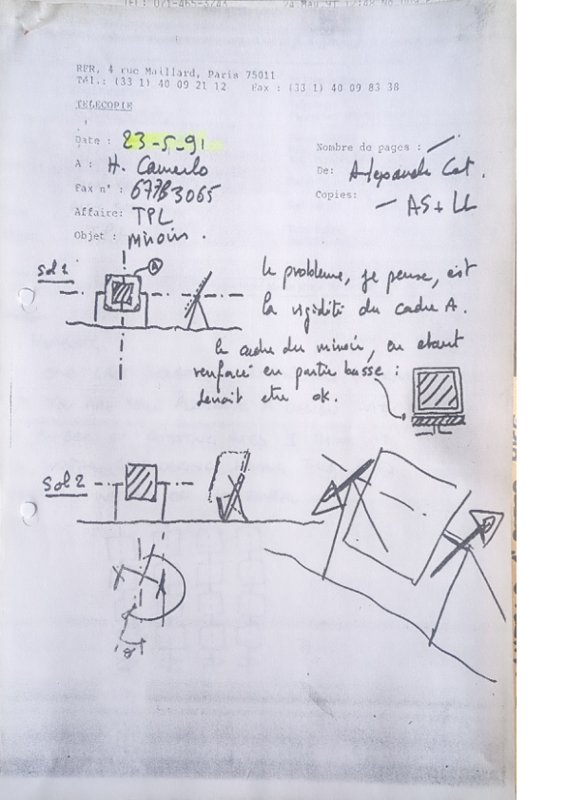 TEL: 071-485-3743 24 May 91 12:48
RFR, 4 rue Maillard, Paris 75011
Tél.: (33 1) 40 09 21 12 Fax : (33 1) 40 09 83 38
TELECOPIE
Date : 23-5-91
Nombre de pages :
A : H. Camerlo
De: Alexandre Cot.
Fax n° : 67783065
Copies: — AS + LL
Affaire: TPL
Objet : miroirs.
Sol 1
A
le problème, je pense, est
la rigidité du cadre A.
le cadre du miroir, en étant
renforcé en partie basse :
devait etre ok.
Sol 2